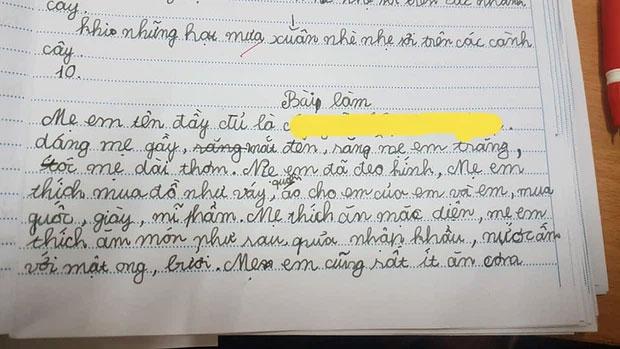 khi những hạt mưa xuân nhè nhẹ rơi trên các cành
cây
10.
Bài làm
Mẹ em tên đầy đủ là
dáng mẹ gầy, mái đen, răng mẹ em trắng,
tóc mẹ dài thơm. Mẹ em đã đeo kính, Mẹ em
thích mua đồ như váy, quần áo cho em của em và em, mua
guốc, giày, mĩ phẩm. Mẹ thích ăn mặc diện, mẹ em
thích ăm món như sau quửa nhập khẩu, nước ấm
với mật ong, bưởi. Mẹ em cũng rất ít ăn cơm